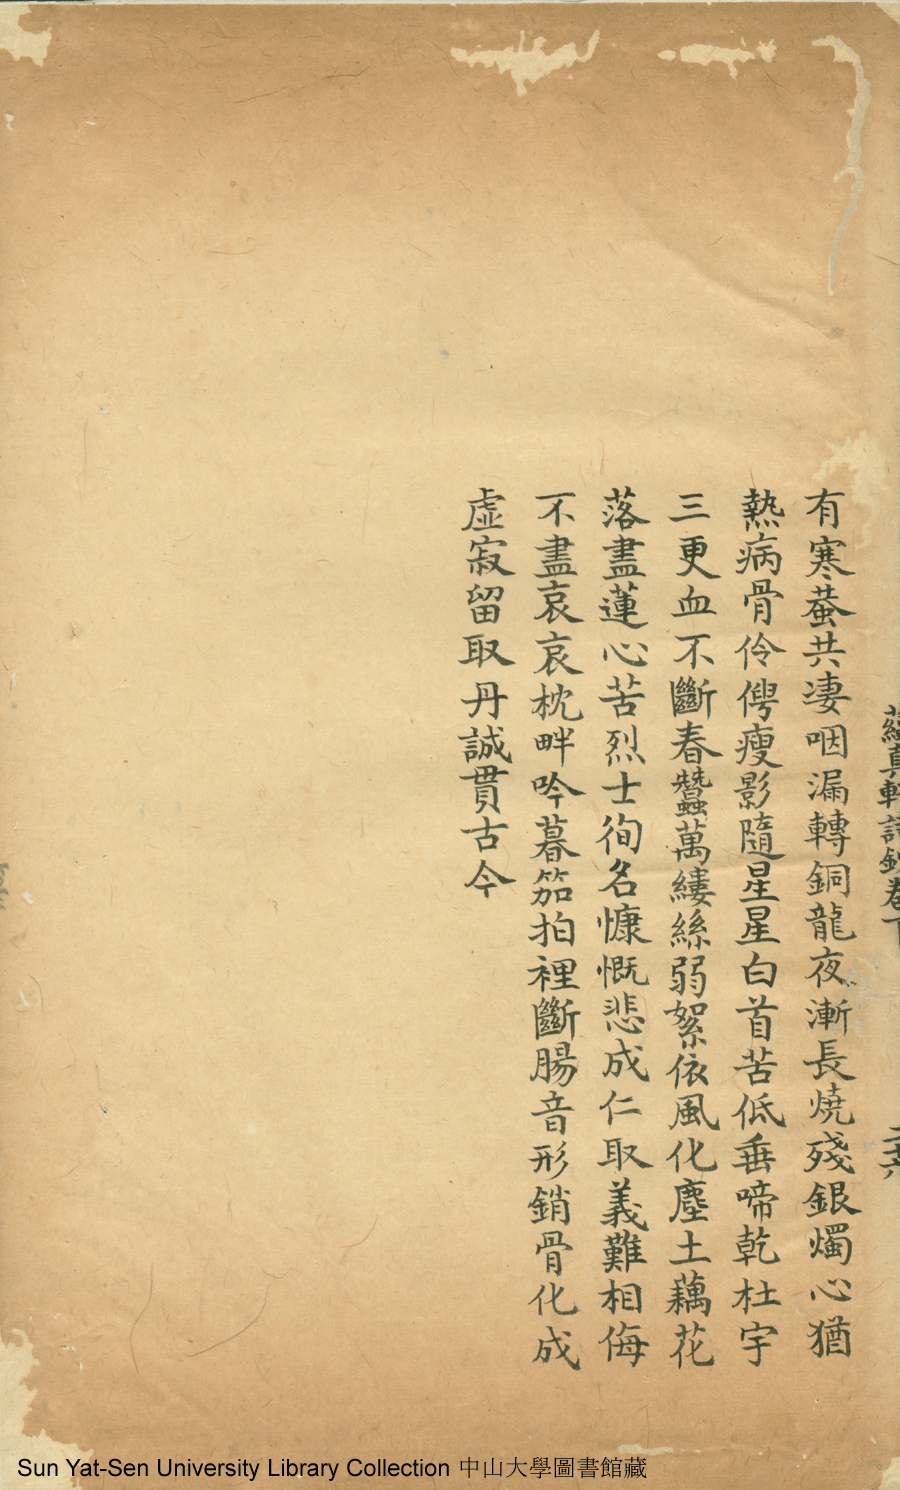 有寒蛩共淒咽漏轉銅龍夜漸長燒殘銀燭心猶
熱病骨伶俜瘦影隨星星白首苦低垂啼乾杜宇
三更血不斷春蠶萬縷絲弱絮依風化塵土藕花
落盡蓮心苦烈士徇名慷慨悲成仁取義難相侮
不盡哀哀枕畔吟暮笳拍裡斷腸音形銷骨化成
虛寂留取丹誠貫古今
真軒詩鈔卷下
二十六
Sun Yat-Sen University Library Collection 中山大學圖書館藏